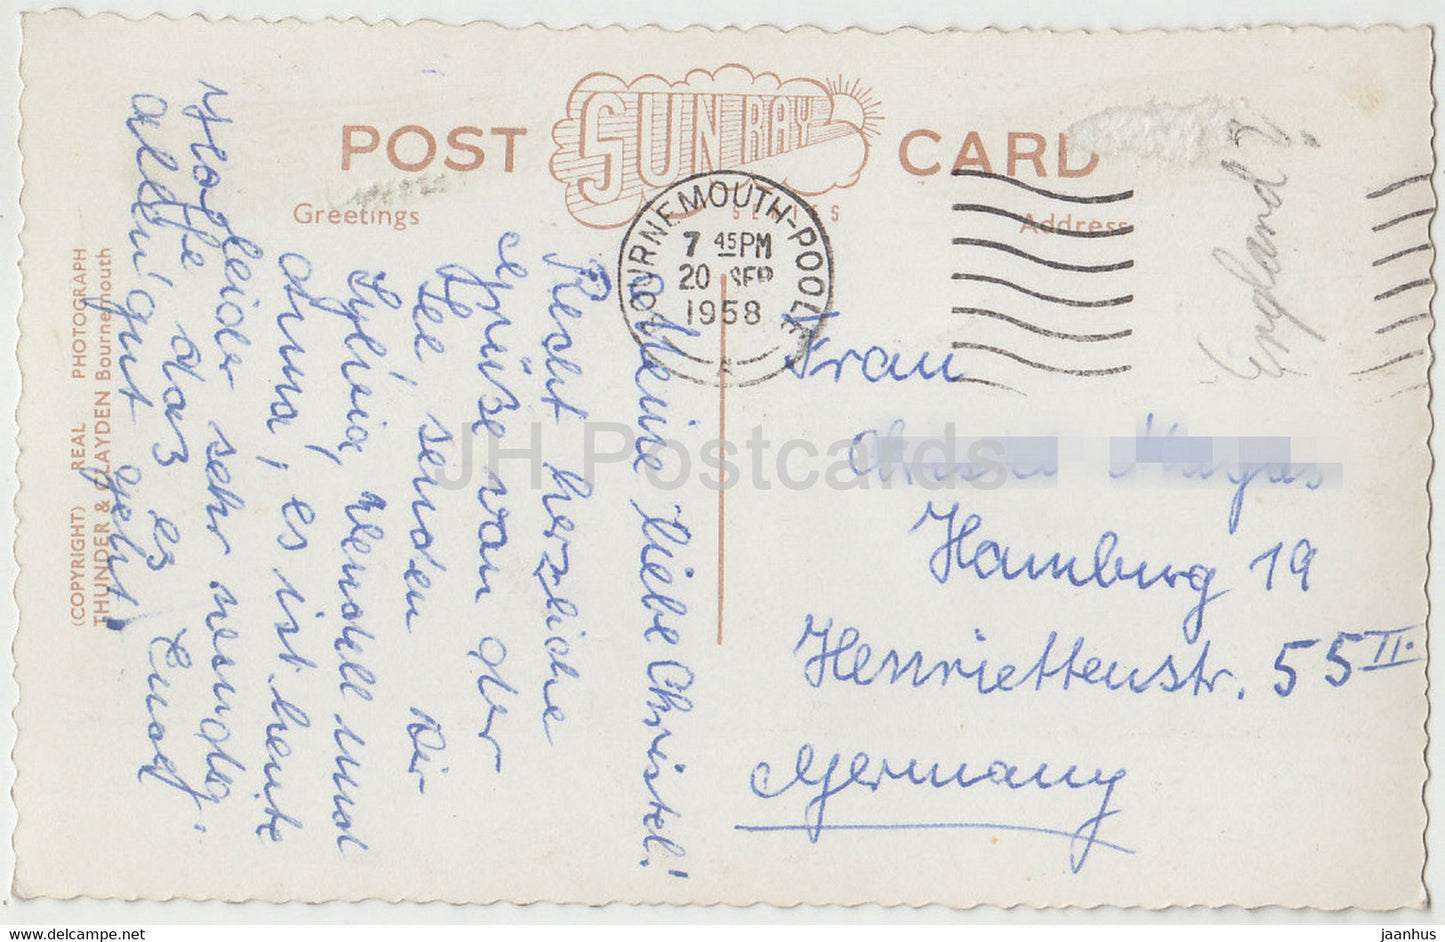 POST SUN RAY CARD
SERIES
Greetings
Address
BOURNEMOUTH-POOLE
7 45PM
20 SEP
1958
England?
(COPYRIGHT) REAL PHOTOGRAPH
THUNDER & CLAYDEN Bournemouth
Meine liebe Christel!
Recht herzliche
Grüße von der
See, senden Dir
Sylvia, Wendell und
Anna, es ist heute
leider sehr neindig.
Hoffe das es Euch
allen gut geht!
Frau
Hamburg 19
Henriettenstr. 55 II.
Germany
JH Postcards
www.delcampe.net
jaanhus